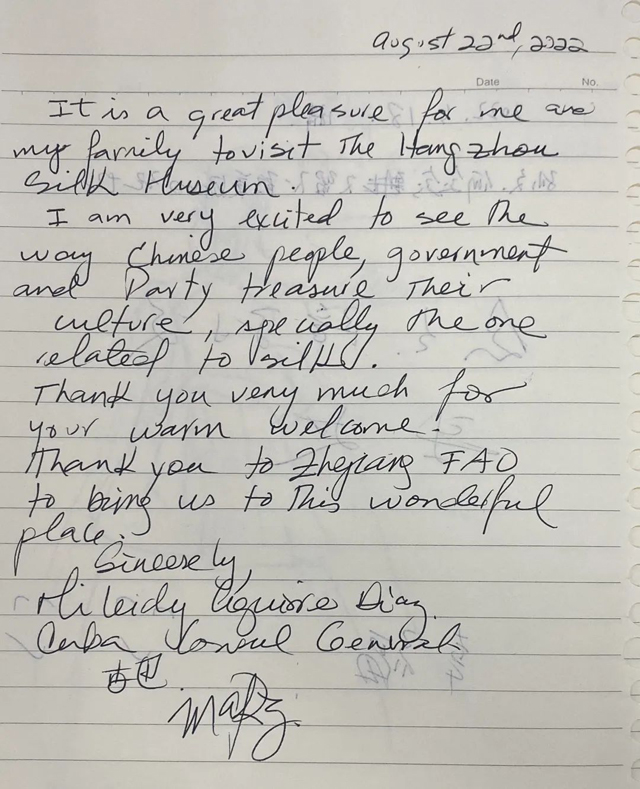 August 22nd, 2022
Date No.
It is a great pleasure for me and
my family to visit The Hangzhou
Silk Museum.
I am very excited to see The
way Chinese people, government
and Party treasure Their
culture, specially The one
related to silk.
Thank you very much for
your warm welcome!
Thank you to Zhejiang FAO
to bring us to This wonderful
place.
Sincerely,
Mileidy Aguirre Diaz
Cuba Consul General
古巴